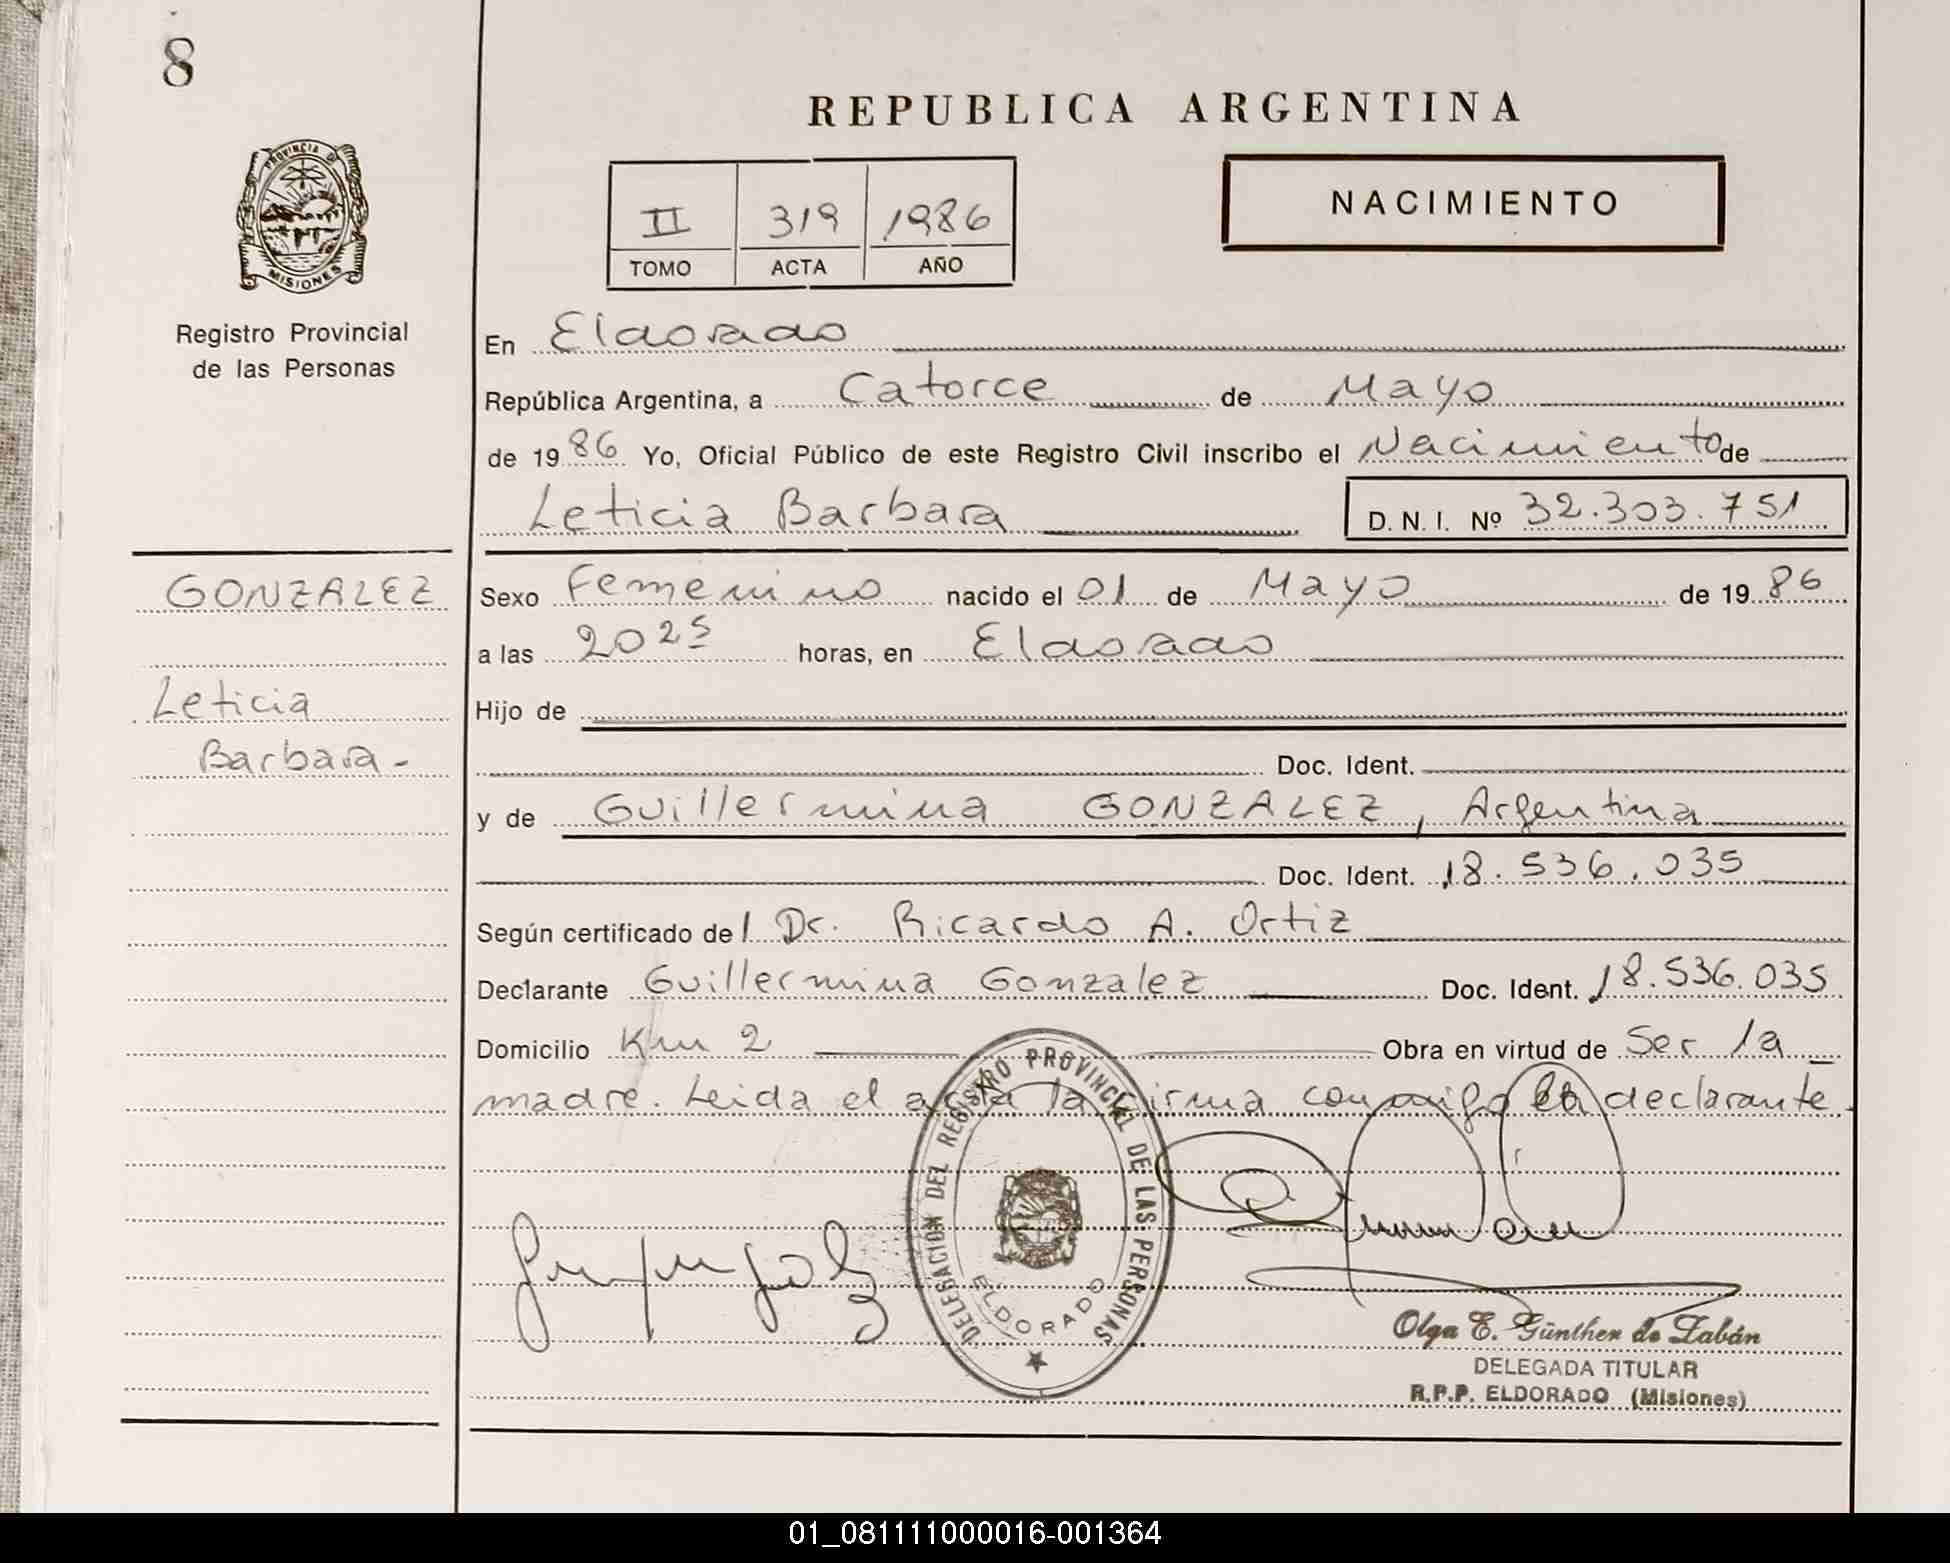 8
REPUBLICA ARGENTINA
PROVINCIA DE
MISIONES
II 319 1986
TOMO ACTA AÑO
NACIMIENTO
Registro Provincial
de las Personas
En Eldorado
República Argentina, a Catorce de Mayo
de 1986 Yo, Oficial Público de este Registro Civil inscribo el Nacimiento de
Leticia Barbara D. N. I. Nº 32.303.751
GONZALEZ
Leticia
Barbara-
Sexo Femenino nacido el 01 de Mayo de 1986
a las 20 25 horas, en Eldorado
Hijo de
Doc. Ident.
y de Guillermina GONZALEZ, Argentina
Doc. Ident. 18.536.035
Según certificado del Dr. Ricardo A. Ortiz
Declarante Guillermina Gonzalez Doc. Ident. 18.536.035
Domicilio Km 2 Obra en virtud de Ser la
madre. Leida el acta la firma conmigo la declarante.
DELEGACION DEL REGISTRO PROVINCIAL DE LAS PERSONAS
ELDORADO
Olga E. Günther de Zabán
DELEGADA TITULAR
R.P.P. ELDORADO (Misiones)
01_081111000016-001364